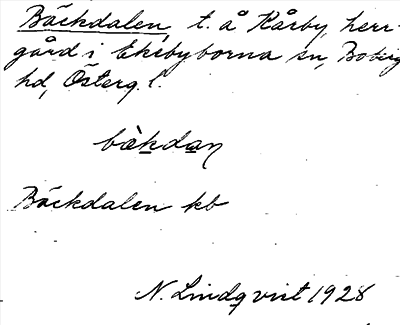 Bäckdalen, t. å Kårby, herr-
gård i Ekebyborna sn, Boberg
hd, Österg. l.
bàkdan
Bäckdalen kb
N. Lindqvist 1928